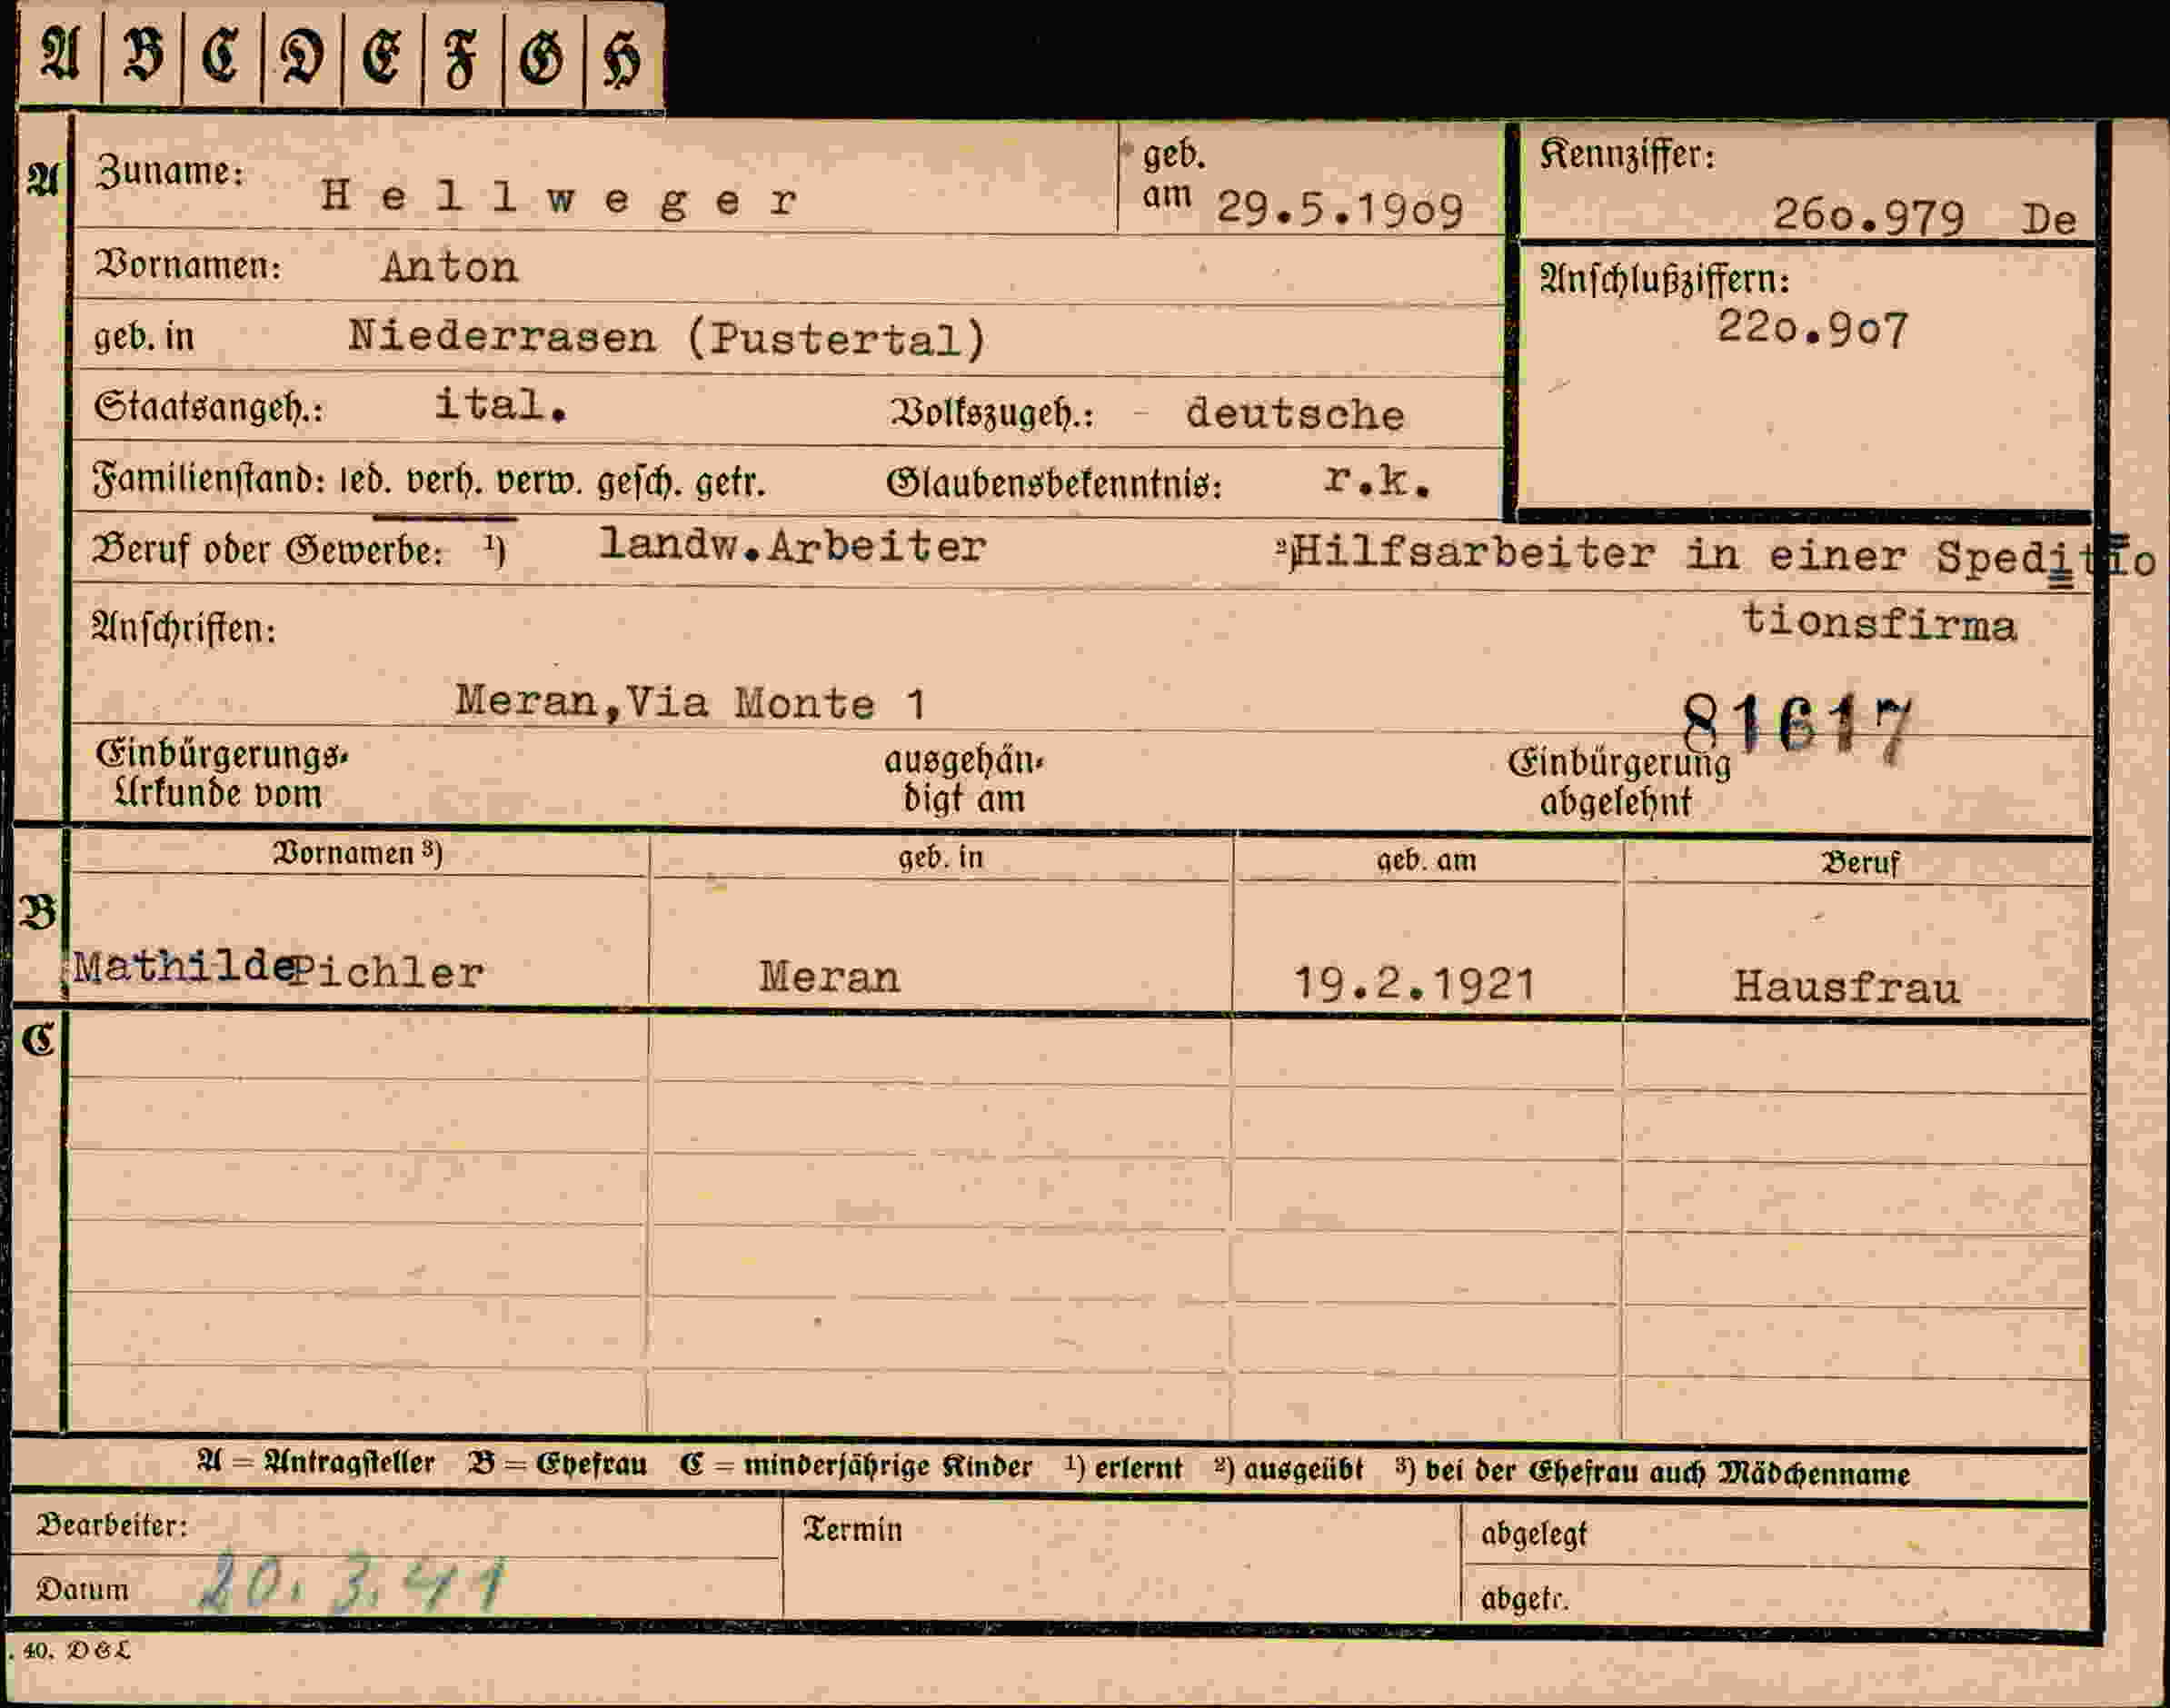 A B C D E F G H
A Zuname: Hellweger geb. am 29.5.1909 Kennziffer: 260.979 De
Vornamen: Anton Anschlußziffern:
220.907
geb. in Niederrasen (Pustertal)
Staatsangeh.: ital. Volkszugeh.: - deutsche
Familienstand: led. verh. verw. gesch. getr. Glaubensbekenntnis: r.k.
Beruf oder Gewerbe: ¹) landw.Arbeiter ²)Hilfsarbeiter in einer Speditio
Anschriften: tionsfirma
Meran,Via Monte 1
81617
Einbürgerungs- ausgehän- Einbürgerung
Urkunde vom digt am abgelehnt
Vornamen ³) geb. in geb. am Beruf
B
Mathilde Pichler Meran 19.2.1921 Hausfrau
C
A = Antragsteller B = Ehefrau C = minderjährige Kinder ¹) erlernt ²) ausgeübt ³) bei der Ehefrau auch Mädchenname
Bearbeiter: Termin abgelegt
Datum 20.3.41 abgetr.
. 40. DGL